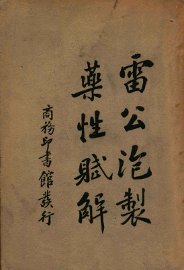 雷公泡製
藥性賦解
商務印書館發行